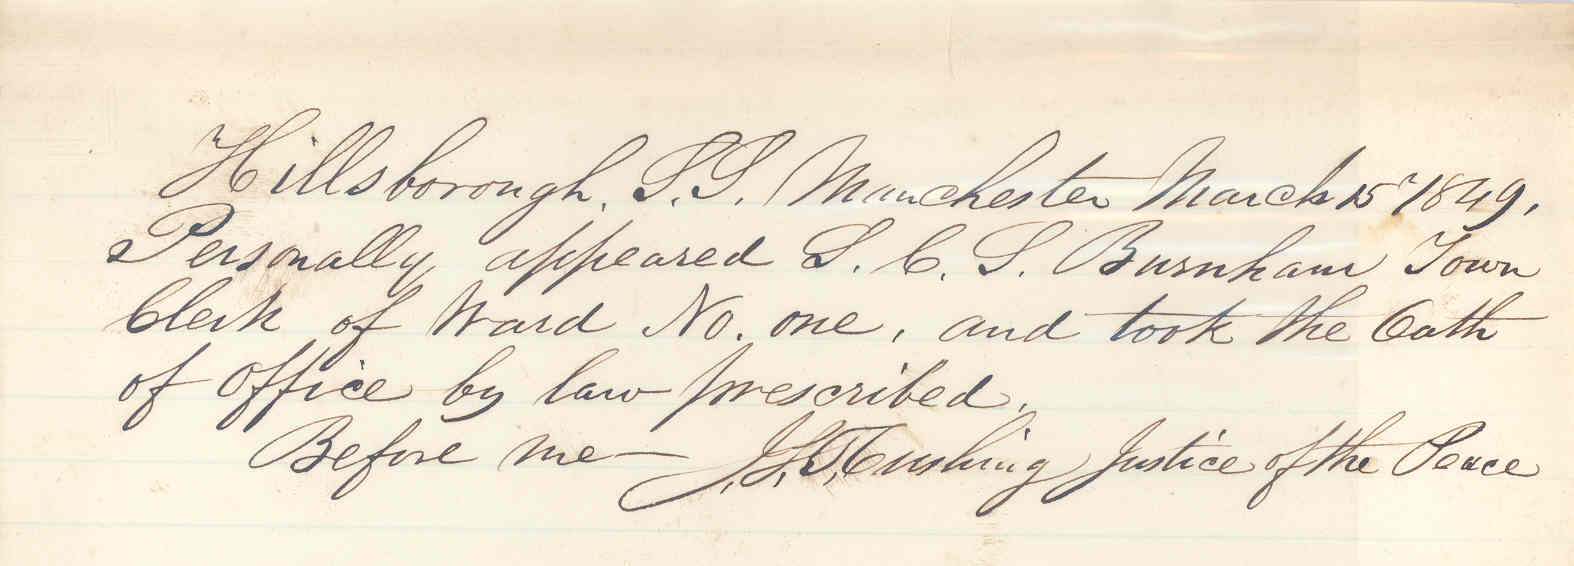 Hillsborough. S.S. Manchester March 15" 1849.
Personally appeared L. C. S. Burnham Town
Clerk of Ward No. one, and took the Oath
of office by law prescribed.
Before me — Cushing Justice of the Peace